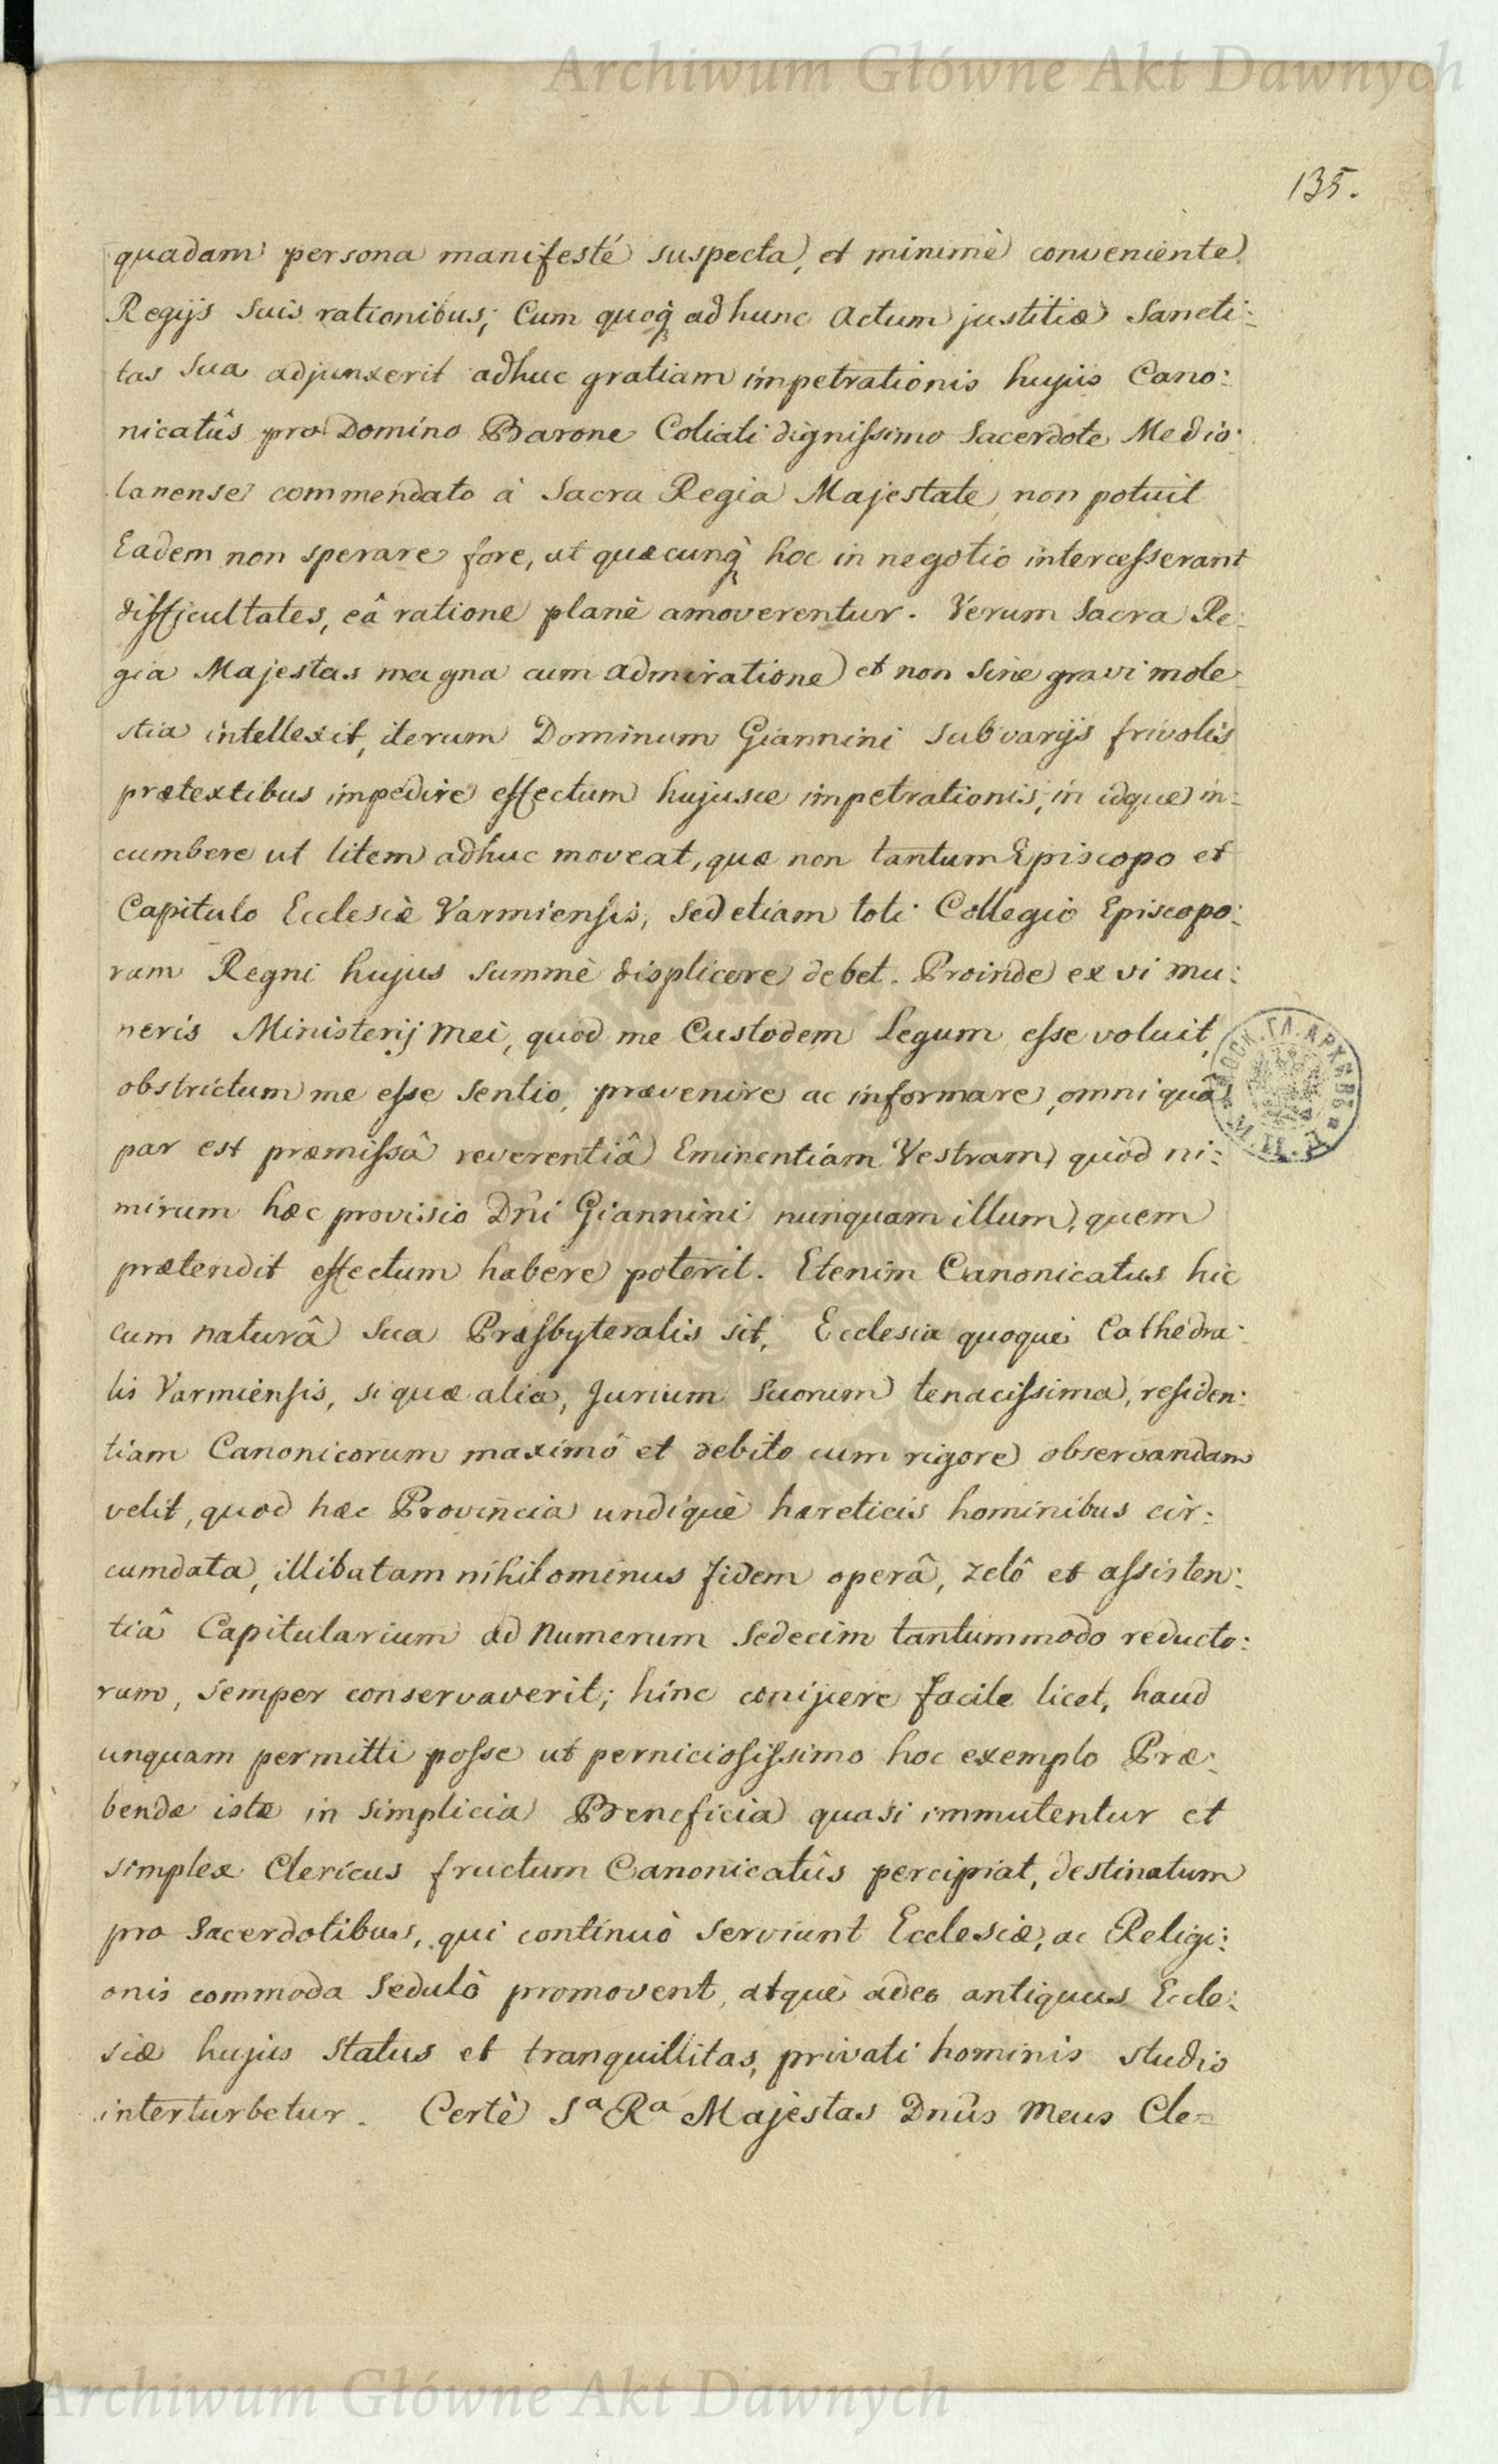 Archiwum Główne Akt Dawnych
135.
quadam persona manifesté suspecta, et minimè conveniente
Regijs suis rationibus; Cum quoq̀ ad hunc Actum justitiæ Sancti:
tas Sua adjunxerit adhuc gratiam impetrationis hujus Cano:
nicatûs pro Domino Barone Coliati dignissimo Sacerdote Medio:
lanense commendato à Sacra Regia Majestate, non potuit
Eadem non sperare fore, ut quæcunq̀ hoc in negotio intercesserant
difficultates, eâ ratione planè amoverentur. Verum Sacra Re:
gia Majestas magna cum admiratione et non sine gravi mole
stia intellexit, iterum Dominum Giannini sub varijs frivolis
prætextibus impedire effectum hujusce impetrationis, in idque in:
cumbere ut litem adhuc moveat, quæ non tantum Episcopo et
Capitulo Ecclesiæ Varmiensis, sed etiam toti Collegio Episcopo:
rum Regni hujus summè displicere debet. Proinde ex vi mu:
neris Ministerij mei, quod me Custodem Legum esse voluit,
obstrictum me esse sentio, prævenire ac informare, omni quâ
par est præmissâ reverentiâ Eminentiam Vestram, quòd ni:
mirum hæc provisio Dni Giannini nunquam illum, quem
prætendit effectum habere poterit. Etenim Canonicatus hic
cum naturâ sua Præsbyteralis sit, Ecclesia quoque Cathedra:
lis Varmiensis, si quæ alia, Jurium suorum tenacissima, residen:
tiam Canonicorum maximô et debito cum rigore observandam
velit, quod hæc Provincia undiquè hæreticis hominibus cir:
cumdata, illibatam nihilominus fidem operâ, zelô et assisten:
tiâ Capitularium ad numerum sedecim tantummodo reducto:
rum, semper conservaverit; hinc conijcere facile licet, haud
unquam permitti posse ut perniciosissimo hoc exemplo Præ:
bendæ istæ in simplicia Beneficia quasi immutentur et
simplex Clericus fructum Canonicatûs percipiat, destinatum
pro Sacerdotibus, qui continuò serviunt Ecclesiæ, ac Religi:
onis commoda sedulò promovent, atquè adeo antiquus Eccle:
siæ hujus status et tranquillitas, privati hominis studio
interturbetur. Certè Sª Rª Majestas Dnûs meus Cle=
МОСК. ГЛ. АРХИВЪ
Archiwum Główne Akt Dawnych